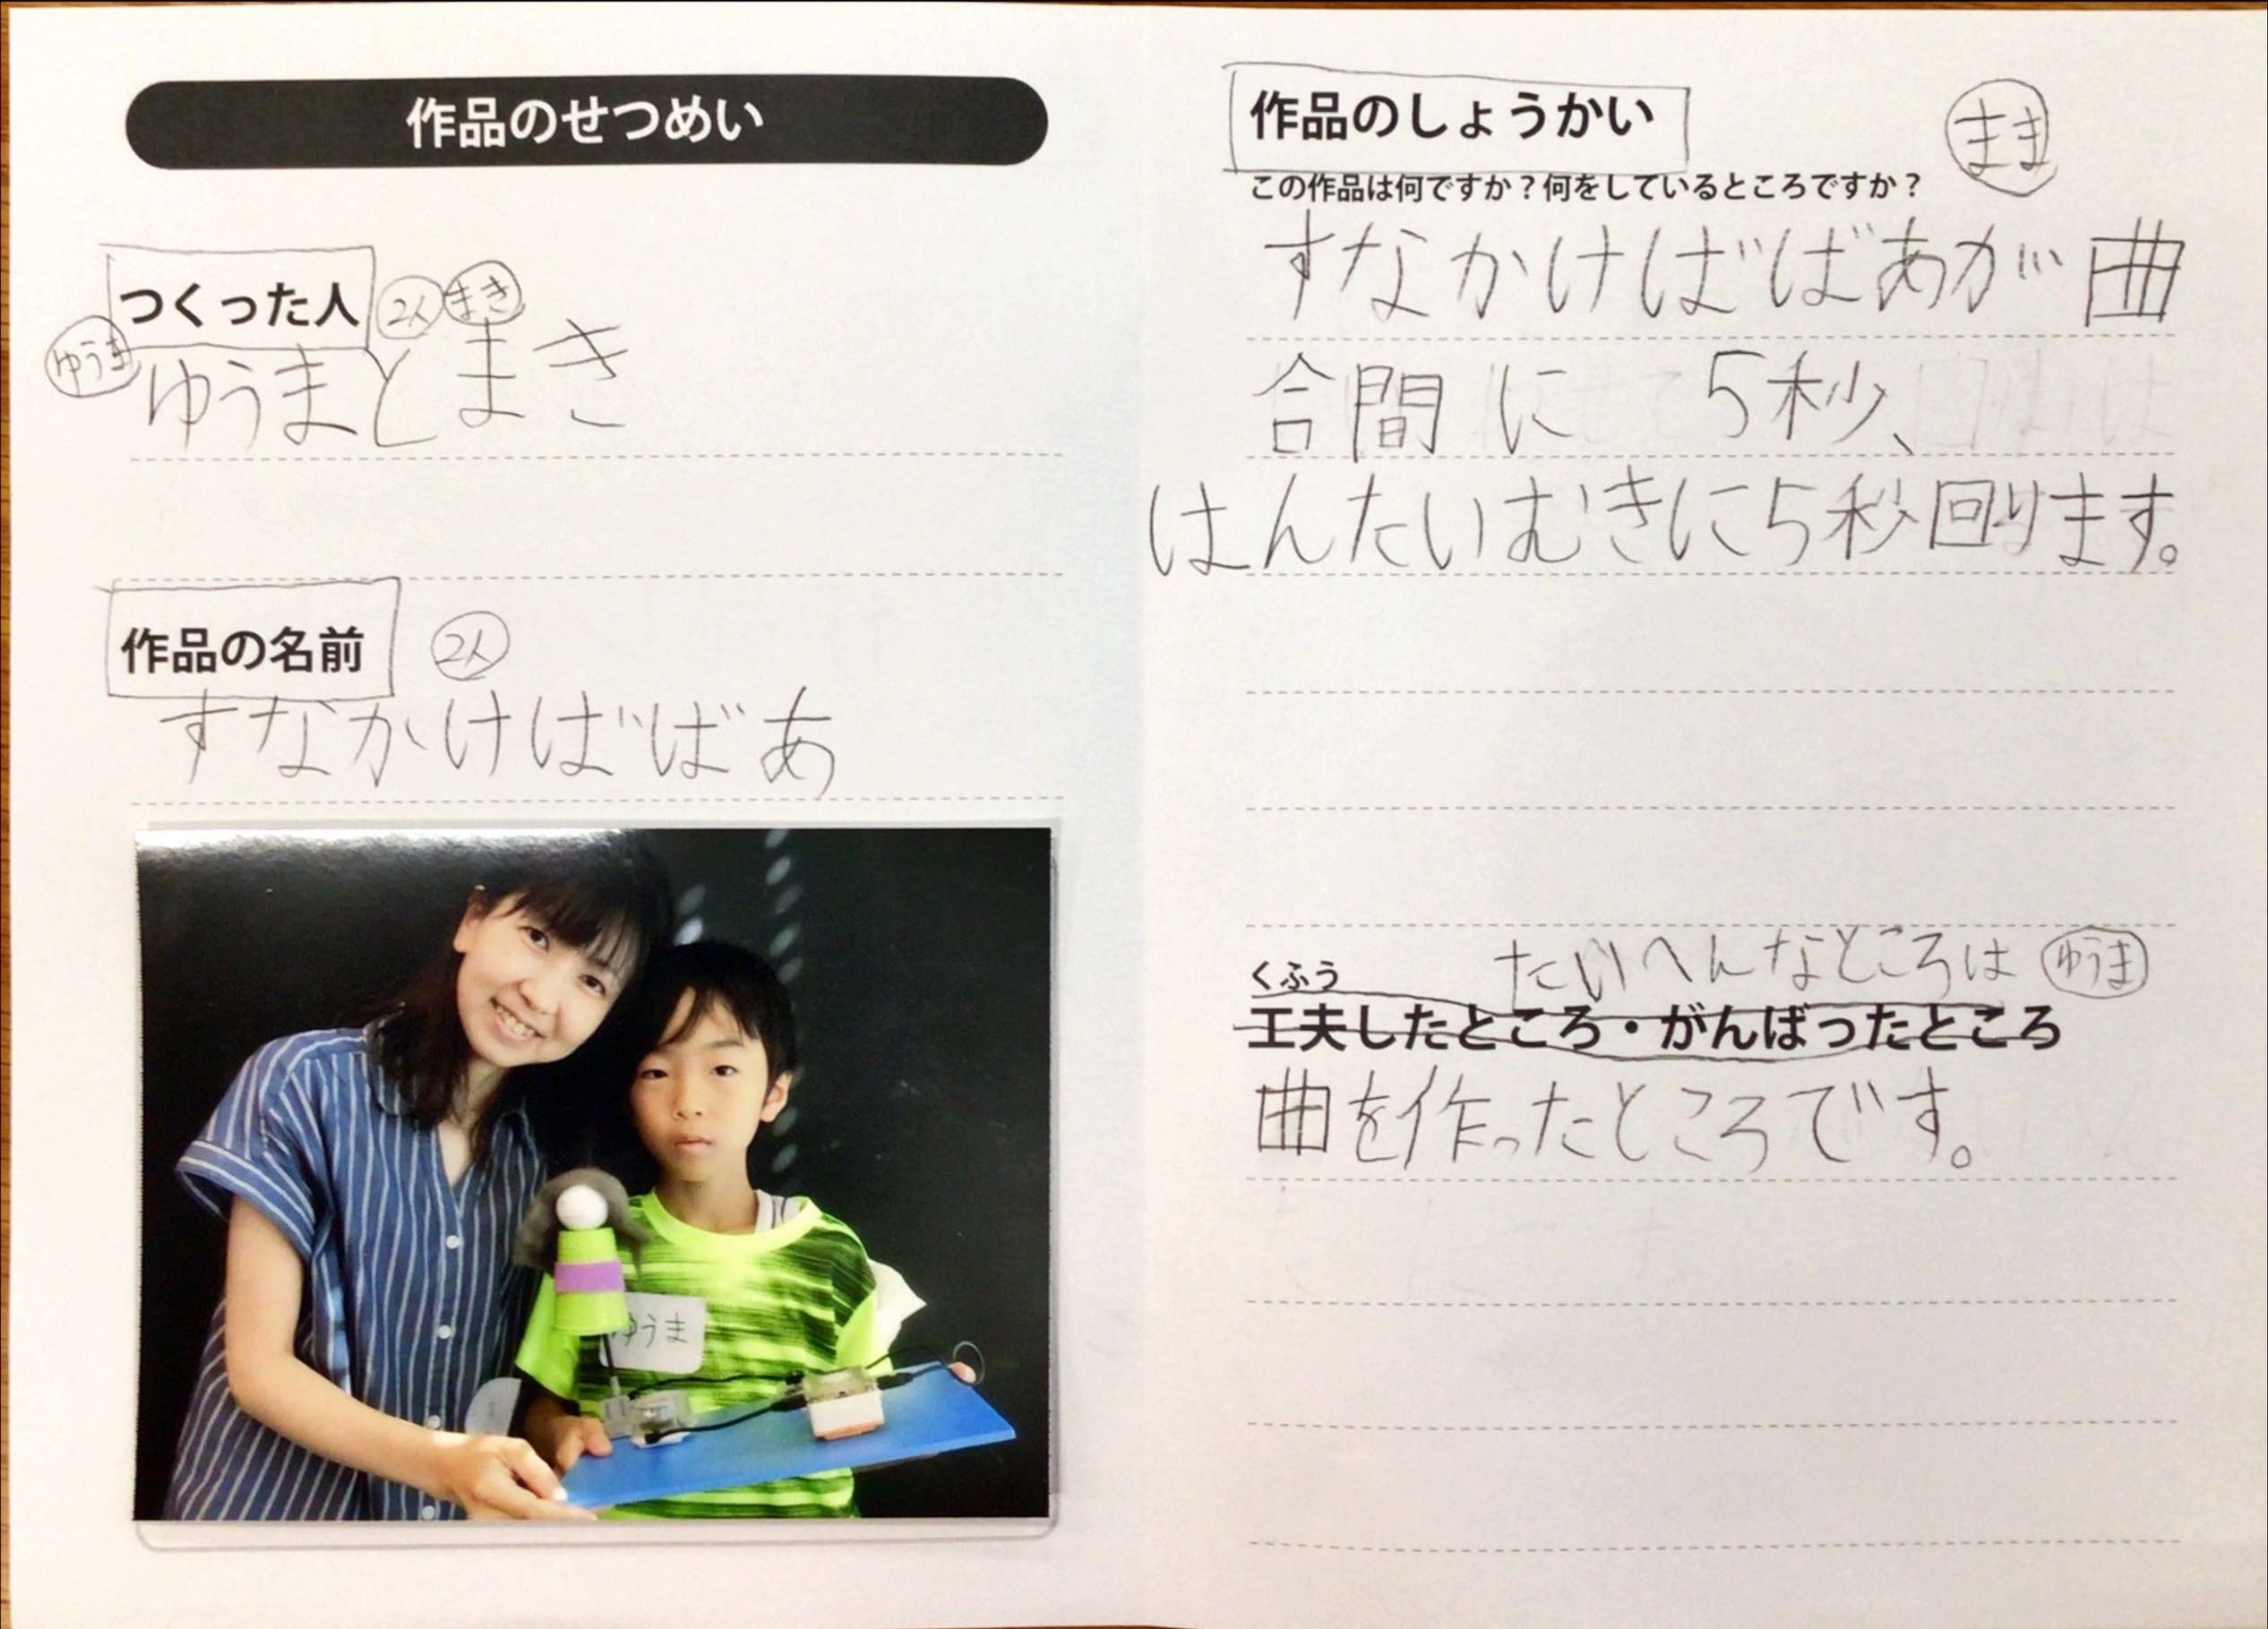 作品のせつめい
つくった人 2人 まき
ゆうま ゆうまとまき
作品の名前 2人
すなかけばばあ
ゆうま
作品のしょうかい まま
この作品は何ですか？何をしているところですか？
すなかけばばあが曲
合間に 5秒、
はんたいむきに5秒回ります。
たいへんなところは ゆうま
くふう
工夫したところ・がんばったところ
曲を作ったところです。